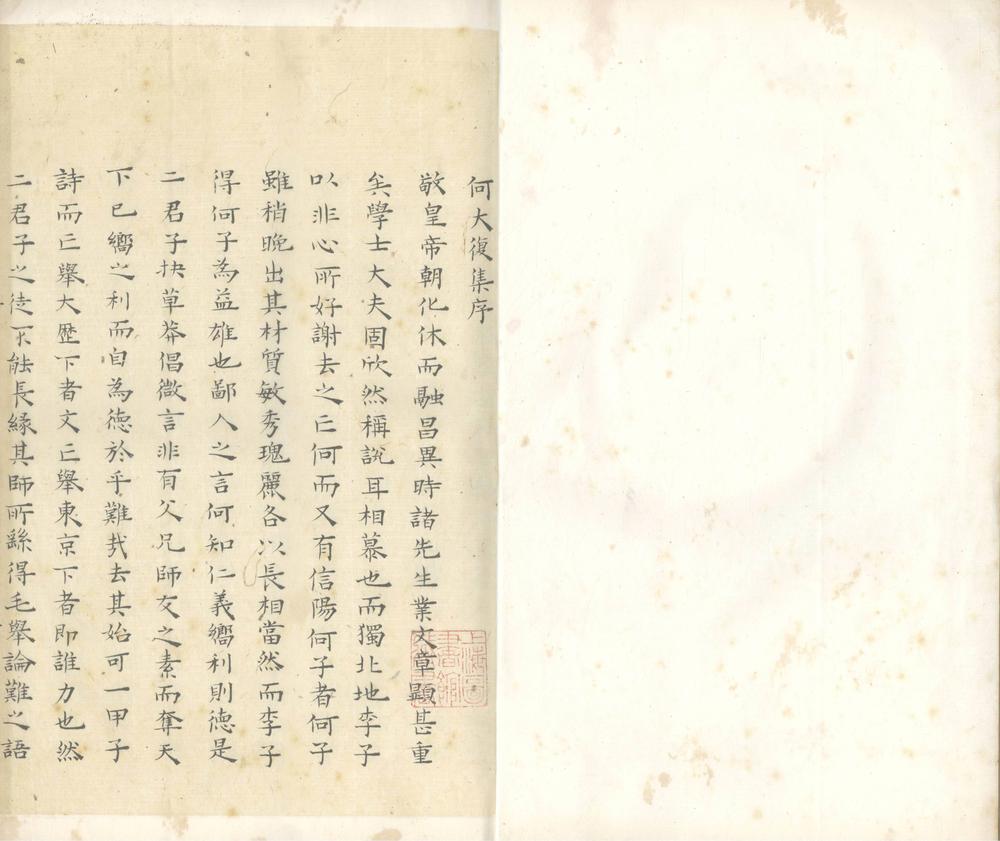 何大復集序
敬皇帝朝化休而融昌異時諸先生業文章顯甚重
矣學士大夫固欣然稱說耳相慕也而獨北地李子
以非心所好謝去之亡何而又有信陽何子者何子
雖稍晚出其材質敏秀瑰麗各以長相當然而李子
得何子為益雄也鄙人之言何知仁義嚮利則德是
二君子抉草莽倡微言非有父兄師友之素而奪天
下已嚮之利而自為德於乎難哉去其始可一甲子
詩而亡舉大歷下者文亡舉東京下者即誰力也然
二君子之徒不能長緣其師所繇得毛舉論難之語
上海圖書館藏